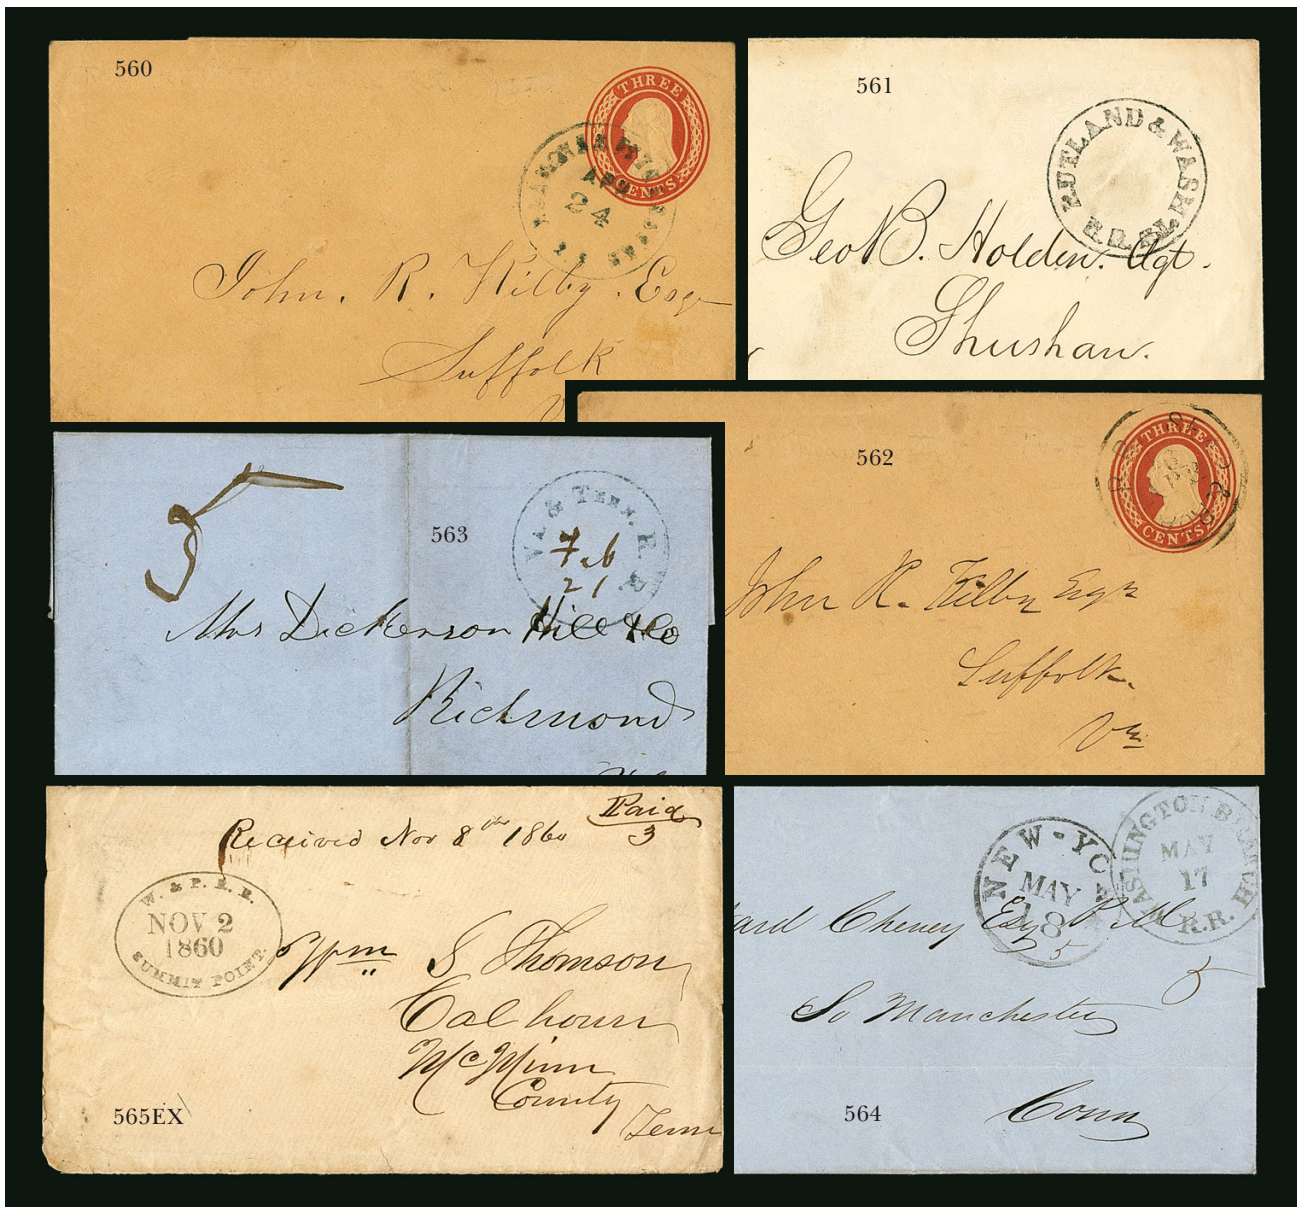 560
THREE
CENTS
APR
24
John. R. Kilby. Esq
Suffolk
V
561
RUTLAND & WASH.
R.D. 
Geo B. Holden. Agt.
Shushan.
562
THREE
CENTS
R.D.
John R. Kilby Esqr
Suffolk.
Va
563
5
VA & TENN. R. R
Feb
21
Mrs Dickerson Hill & Co
Richmond
565EX
Received Nov 8th 1860
Paid
3
W. & P. R. R.
NOV 2
1860
SUMMIT POINT.
S Thomson
Calhoun
McMinn
County
Tenn
564
NEW-YO
MAY
18
WASHINGTON BRANCH
MAY
17
R.R.
ard Cheney Esq P.M
5
5
So Manchester
Conn